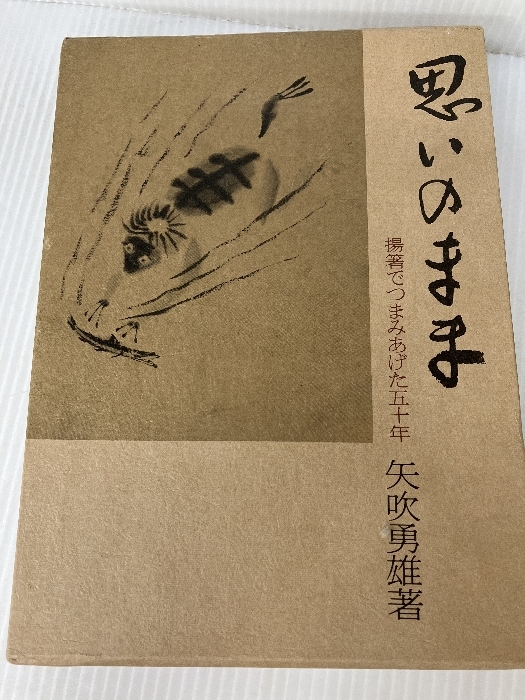 思いのまま
揚箸でつまみあげた五十年
矢吹勇雄著